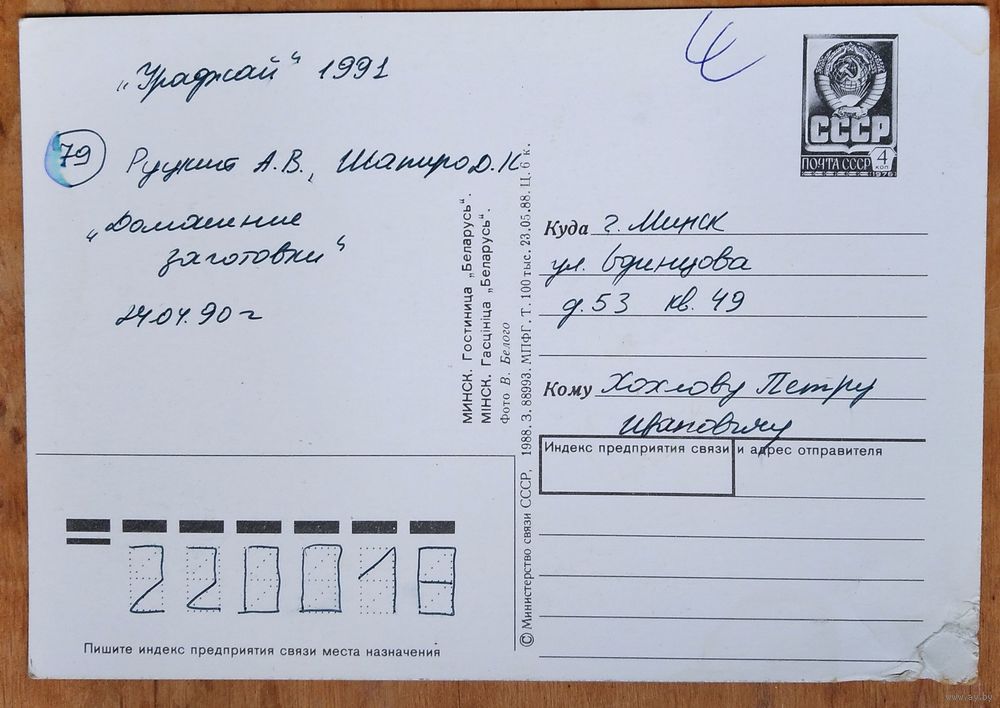 „Ураджай“ 1991
79 Руцкий А.В., Шапиро Д.К
„Домашние
заготовки“
24.04.90 г
МИНСК. Гостиница „Беларусь“.
МІНСК. Гасцініца „Беларусь“.
Фото В. Белого
© Министерство связи СССР, 1988. З. 88993. МПФГ. Т. 100 тыс. 23.05.88. Ц. 6 к.
СССР
ПОЧТА СССР 4 КОП
1976
Куда г. Минск
ул. Одинцова
д. 53 кв. 49
Кому Хохлову Петру
Ивановичу
Индекс предприятия связи и адрес отправителя
220018
Пишите индекс предприятия связи места назначения
www.ay.by